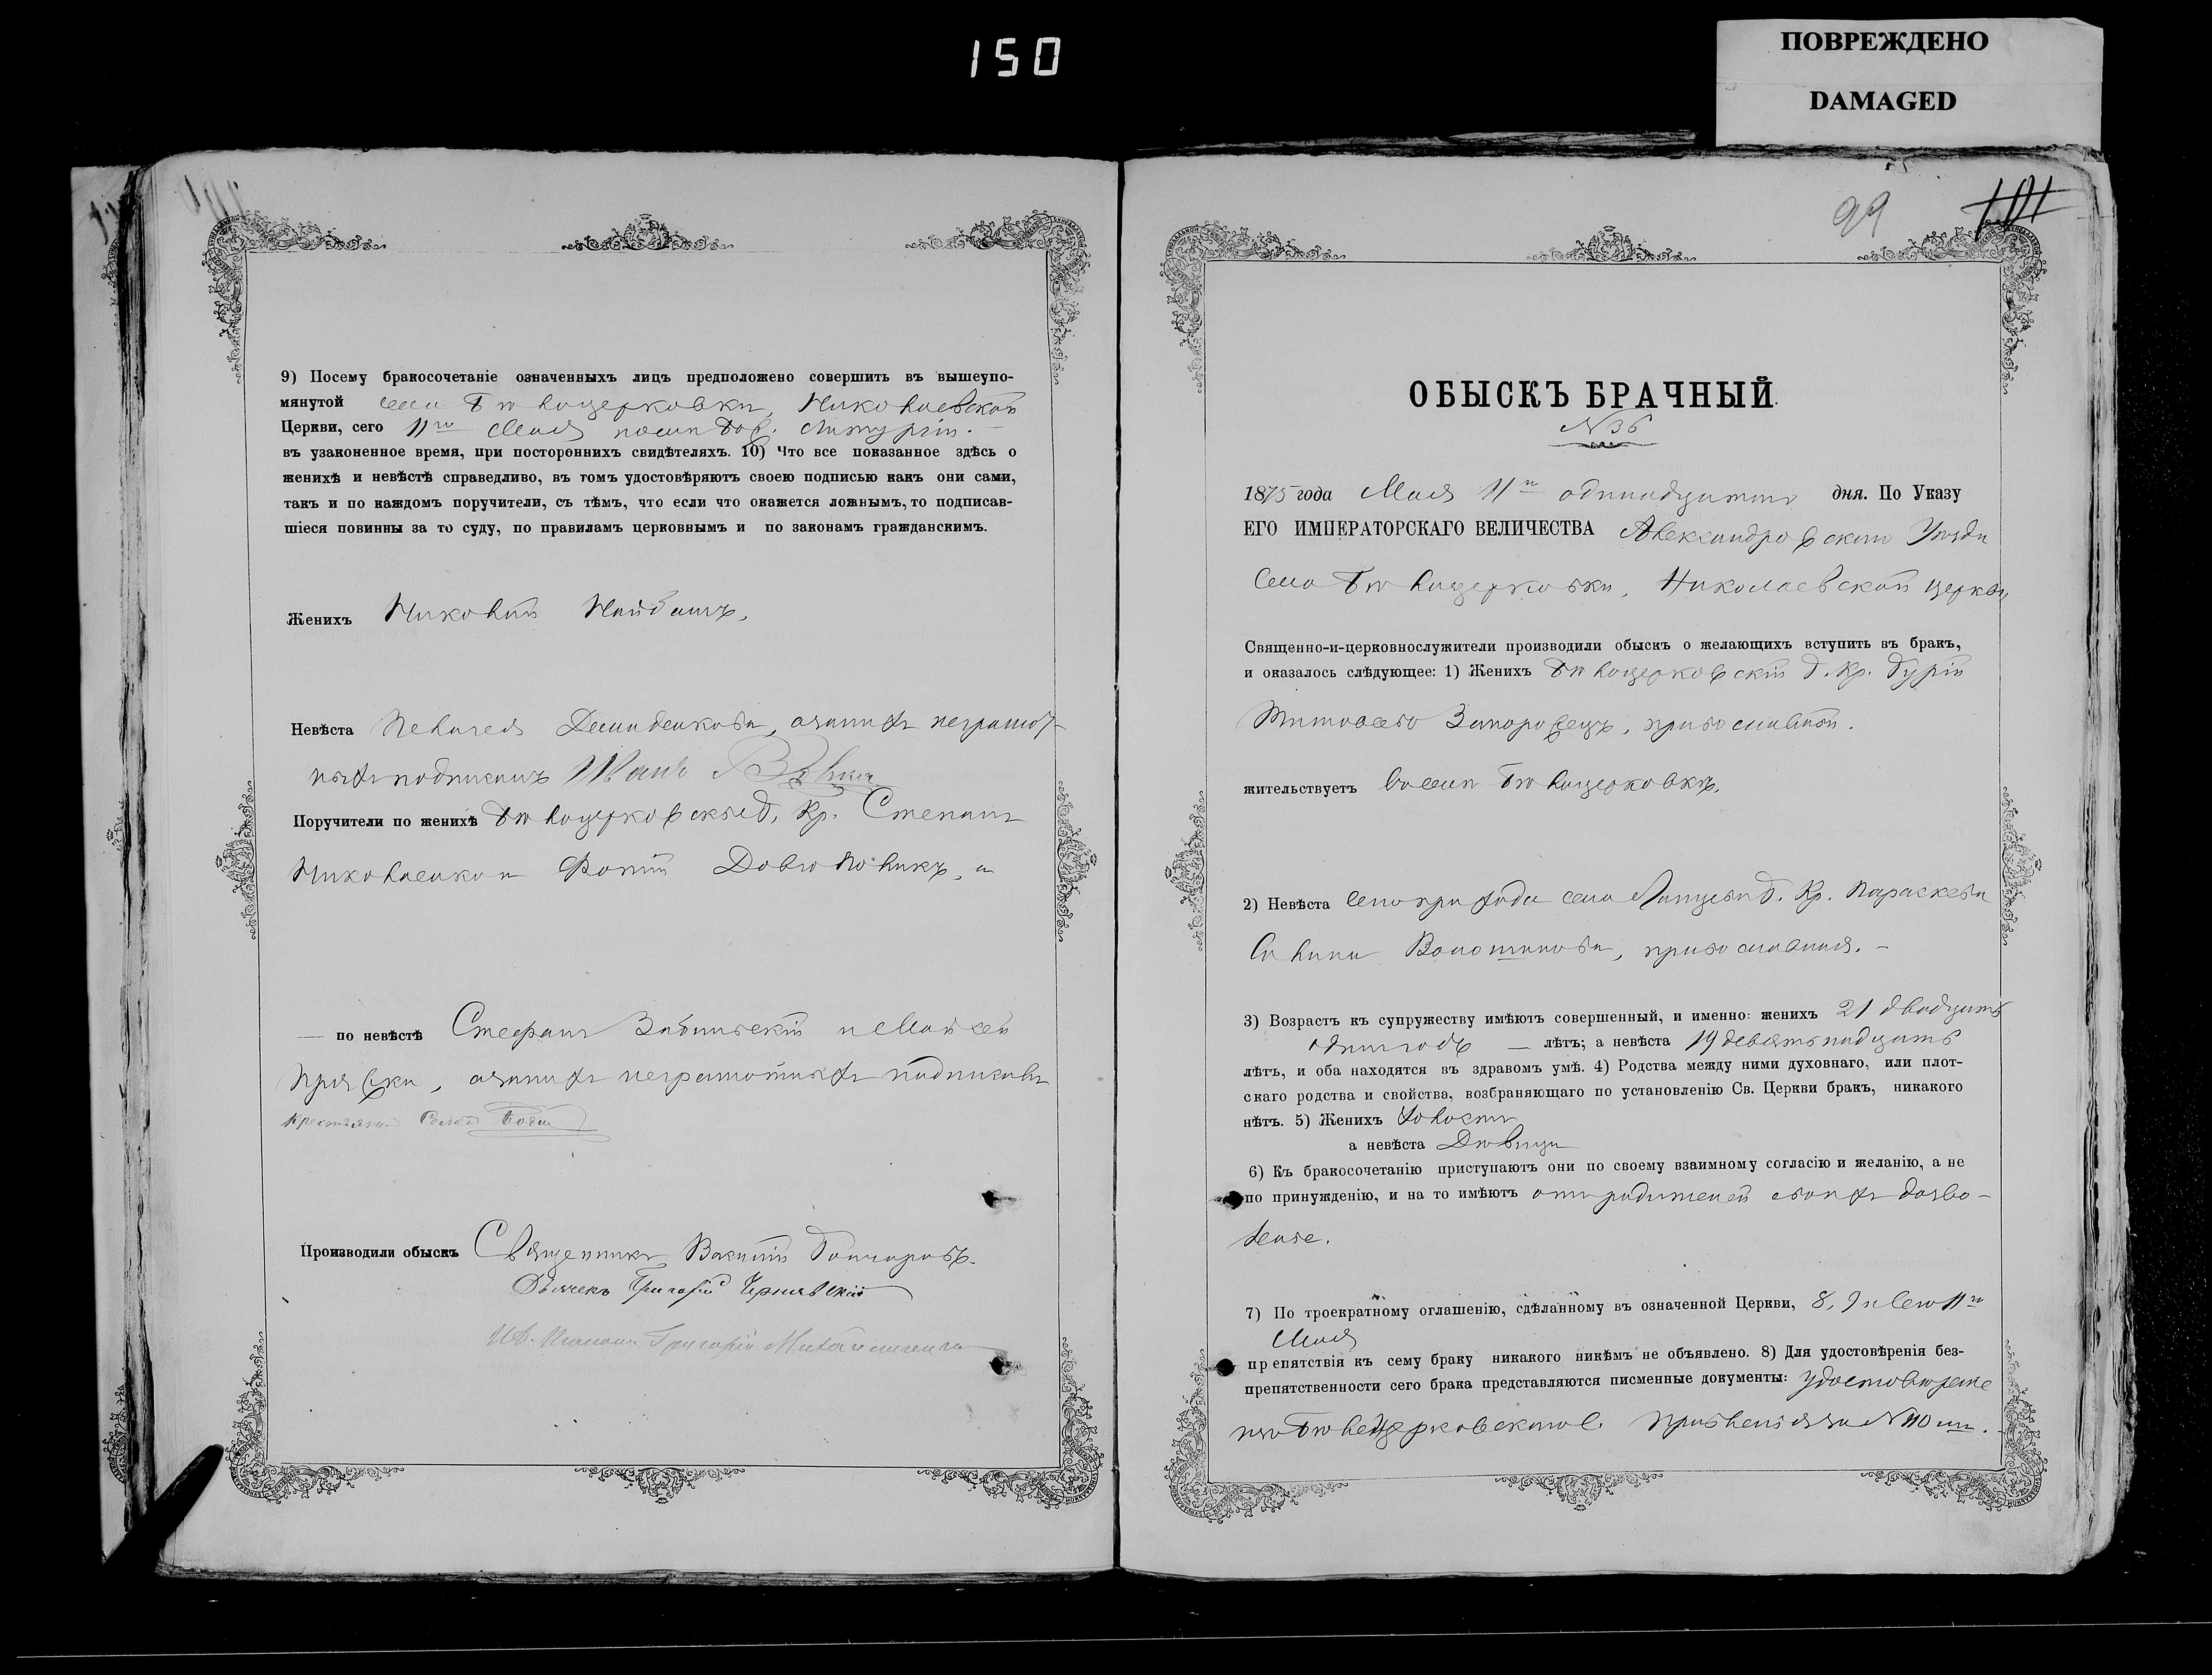 150
ПОВРЕЖДЕНО
DAMAGED
9) Посему бракосочетаніе означенныхъ лицъ предположено совершить въ вышеупо-
мянутой села Бѣлоцерковки, Николаевской
Церкви, сего 11го Мая послѣ Бож. Литургіи.
въ узаконенное время, при постороннихъ свидѣтеляхъ. 10) Что все показанное здѣсь о
женихѣ и невѣстѣ справедливо, въ томъ удостовѣряютъ своею подписью какъ они сами,
такъ и по каждомъ поручители, съ тѣмъ, что если что окажется ложнымъ, то подписав-
шіеся повинны за то суду, по правиламъ церковнымъ и по законамъ гражданскимъ.
Женихъ Николай
Невѣста Пелагея Демиденкова, а за нихъ неграмот-
ныхъ подписалъ Иванъ
Поручители по женихѣ Бѣлоцерковскіе Г. Кр. Степанъ
Николаенко и Фотій
— по невѣстѣ Стефанъ и Моисей
а за нихъ неграмотныхъ подписалъ
Производили обыскъ Священникъ Василій Гончаровъ.
Дьячекъ Григорій Чернявскій
Григорій
99
101
ОБЫСКЪ БРАЧНЫЙ.
№36
1875 года Мая 11го одинадцатаго дня. По Указу
ЕГО ИМПЕРАТОРСКАГО ВЕЛИЧЕСТВА Александровскаго Уѣзда
Села Бѣлоцерковки, Николаевской церкви
Священно-и-церковнослужители производили обыскъ о желающихъ вступить въ бракъ,
и оказалось слѣдующее: 1) Женихъ Бѣлоцерковскій Г. Кр. Гурій
Запорожецъ, православный.
жительствуетъ въ селѣ Бѣлоцерковкѣ.
2) Невѣста сего прихода села Г. Кр. Параскева
Волошинова, православная. —
3) Возрастъ къ супружеству имѣютъ совершенный, и именно: женихъ 21 двадцать
одинъ годъ — лѣтъ; а невѣста 19 девятьнадцать
лѣтъ, и оба находятся въ здравомъ умѣ. 4) Родства между ними духовнаго, или плот-
скаго родства и свойства, возбраняющаго по установленію Св. Церкви бракъ, никакого
нѣтъ. 5) Женихъ Холостъ
а невѣста Дѣвица
6) Къ бракосочетанію приступаютъ они по своему взаимному согласію и желанію, а не
по принужденію, и на то имѣютъ отъ родителей своихъ дозво-
леніе.
7) По троекратному оглашенію, сдѣланному въ означенной Церкви, 8, 9 и сего 11го
Мая
препятствія къ сему браку никакого никѣмъ не объявлено. 8) Для удостовѣренія без-
препятственности сего брака представляются писменные документы: удостовѣреніе
Бѣлоцерковскаго С. Правленія за №